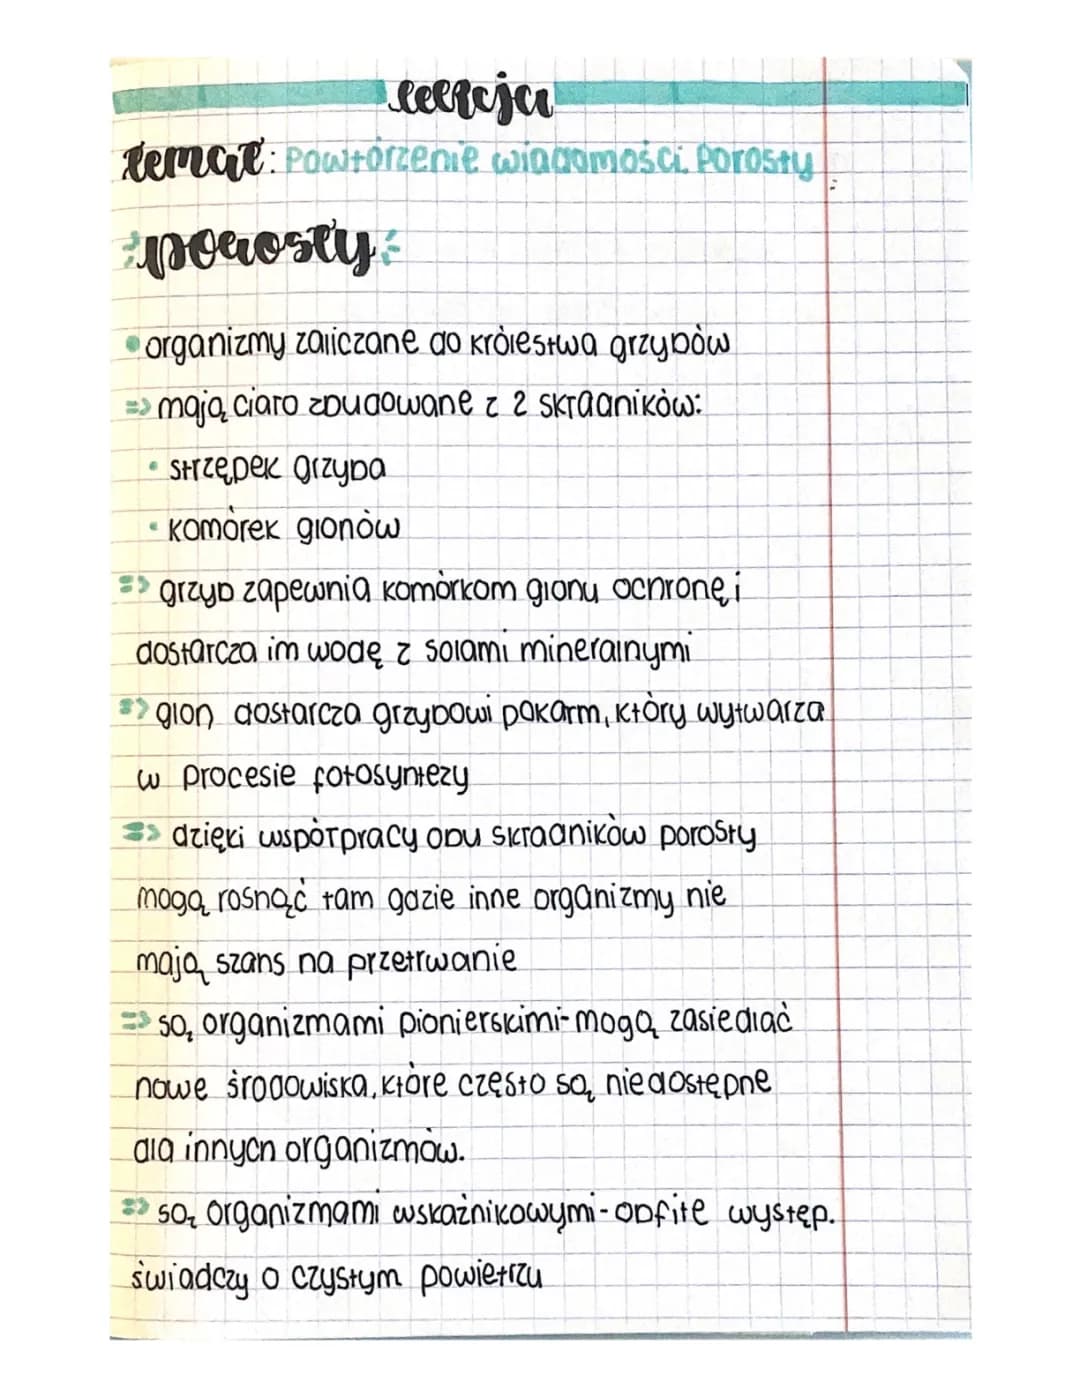 lekcja
temat: Powtórzenie wiadomości. Porosty
porosty
• organizmy zaliczane do królestwa grzybów
=> mają ciało zbudowane z 2 składników:
• strzępek grzyba
• komórek glonów
=> grzyb zapewnia komórkom glonu ochronę i
dostarcza im wodę z solami mineralnymi
=> glon dostarcza grzybowi pokarm, który wytwarza
w procesie fotosyntezy
=> dzięki współpracy obu składników porosty
mogą rosnąć tam gdzie inne organizmy nie
mają szans na przetrwanie
=> są organizmami pionierskimi - mogą zasiedlać
nowe środowiska, które często są niedostępne
dla innych organizmów.
=> są organizmami wskaźnikowymi - obfite występ.
świadczy o czystym powietrzu